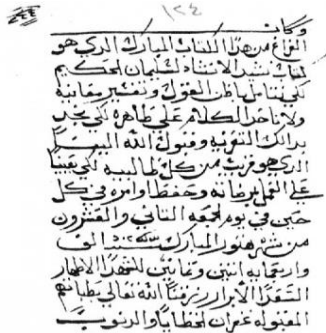 ١٢٤
وكان
الفراغ من هذا الكتاب المبارك الذي هو
كتاب نشيد الانشاد لسليمان الحكيم
لكي نتامل باطن القول ونفسر معانيه
ولا ناخد الكلام علي ظاهره لكي نجد
بدالك التعزيه وقبول الله الينا
الدي هو قريب من كل طالبيه لكي يعيننا
علي العمل برضاته وحفظ اوامره في كل
حين في يوم الجمعه التاني والعشرون
من شهر هتور المبارك سنة الف
واربعمايه اتنين وتمانين للشهدا الاطهار
السعدا الابرار رزقنا الله تعالي بطلباتهم
المقبوله غفران الخطايا والدنوب